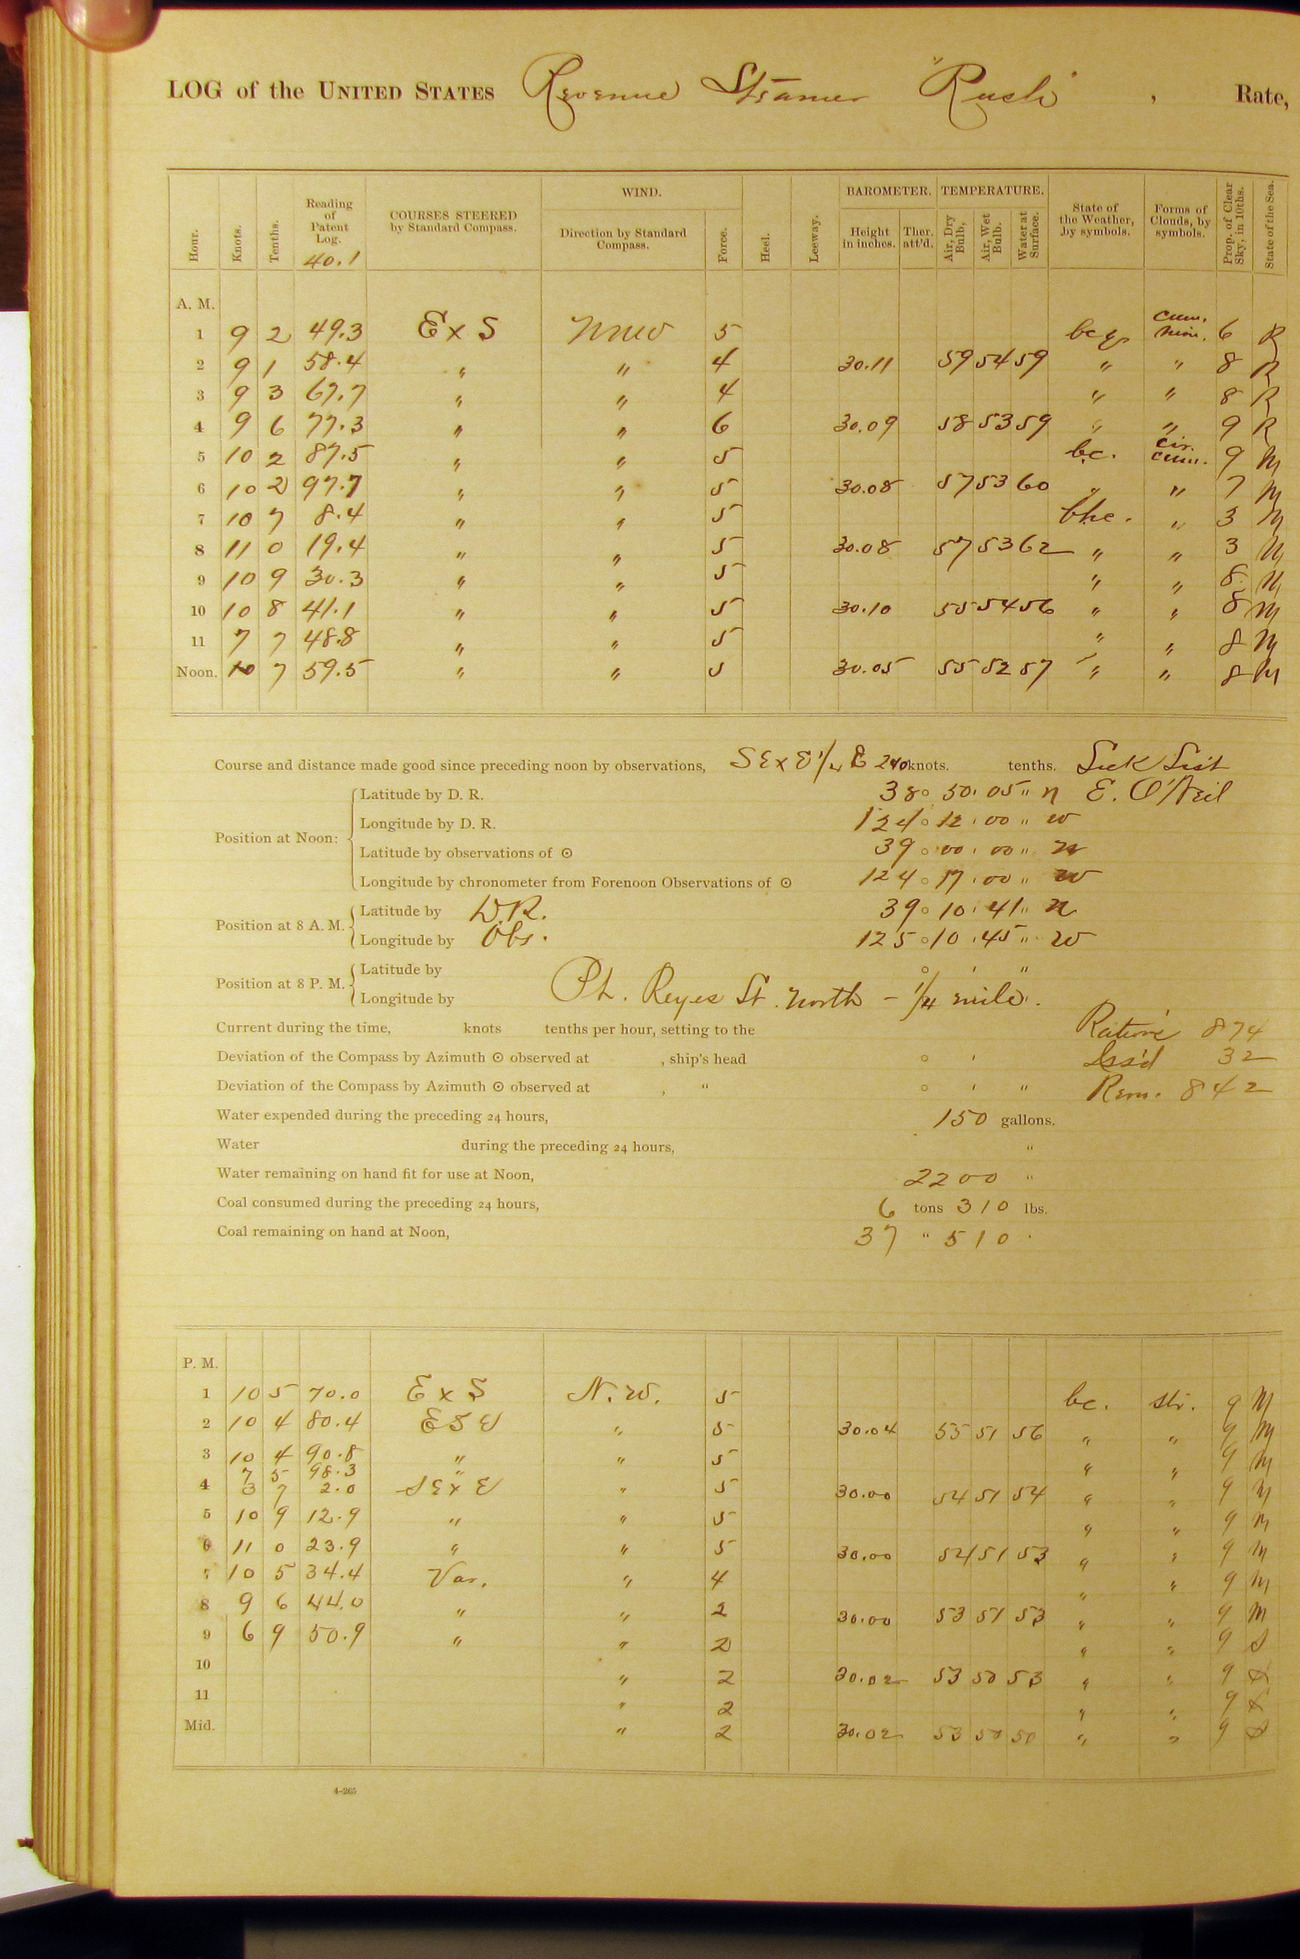 LOG of the UNITED STATES Revenue Steamer "Rush", Rate,
Hour. Knots. Tenths. Reading of Patent Log. 40.1 COURSES STEERED by Standard Compass. WIND. Direction by Standard Compass. Force. Heel. Leeway. BAROMETER. Height in inches. Ther. att'd. TEMPERATURE. Air, Dry Bulb, Air, Wet Bulb. Water at Surface. State of the Weather, by symbols. Forms of Clouds, by symbols. Prop. of Clear Sky, in 10ths. State of the Sea.
A. M.
1 9 2 49.3 E x S NNW 5 bcq cum. nim. 6 R
2 9 1 58.4 " " 4 30.11 59 54 59 " " 8 R
3 9 3 67.7 " " 4 " " 8 R
4 9 6 77.3 " " 6 30.09 58 53 59 " " 9 R
5 10 2 87.5 " " 5 bc. cir. cum. 9 M
6 10 2 97.7 " " 5 30.08 57 53 60 " " 7 M
7 10 7 8.4 " " 5 " 3 M
8 11 0 19.4 " " 5 30.08 57 53 62 " " 3 M
9 10 9 30.3 " " 5 " " 8 M
10 10 8 41.1 " " 5 30.10 55 54 56 " " 8 M
11 7 7 48.8 " " 5 " " 8 M
Noon. 10 7 59.5 " " 5 30.05 55 52 57 " " 8 M
Course and distance made good since preceding noon by observations, SE x E 1/4 E 240 knots. tenths. Sick List
Position at Noon: Latitude by D. R. 38 ° 50 ' 05 " N E. O'Neil
Longitude by D. R. 124 ° 12 ' 00 " W
Latitude by observations of ⊙ 39 ° 00 ' 00 " N
Longitude by chronometer from Forenoon Observations of ⊙ 124 ° 17 ' 00 " W
Position at 8 A. M. Latitude by D.R. 39 ° 10 ' 41 " N
Longitude by Obs. 125 ° 10 ' 45 " W
Position at 8 P. M. Latitude by ° ' "
Longitude by Pt. Reyes Lt. North - 1/4 mile.
Current during the time, knots tenths per hour, setting to the Rations 874
Deviation of the Compass by Azimuth ⊙ observed at , ship's head ° ' Iss'd 32
Deviation of the Compass by Azimuth ⊙ observed at , " ° ' " Rem. 842
Water expended during the preceding 24 hours, 150 gallons.
Water during the preceding 24 hours, "
Water remaining on hand fit for use at Noon, 2200 "
Coal consumed during the preceding 24 hours, 6 tons 310 lbs.
Coal remaining on hand at Noon, 37 " 510 "
P. M.
1 10 5 70.0 E x S N.W. 5 bc. str. 9 M
2 10 4 80.4 ESE " 5 30.04 55 51 56 " " 9 M
3 10 4 90.8 " " 5 " " 9 M
7 5 98.3 "
4 3 7 2.0 SE x E " 5 30.00 54 51 54 " " 9 M
5 10 9 12.9 " " 5 " " 9 M
6 11 0 23.9 " " 5 30.00 54 51 53 " " 9 M
7 10 5 34.4 Var. " 4 " " 9 M
8 9 6 44.0 " " 2 30.00 53 51 53 " " 9 M
9 6 9 50.9 " " 2 " " 9 S
10 " 2 30.02 53 50 53 " " 9 S
11 " 2 " " 9 S
Mid. " 2 30.02 53 50 50 " " 9 S
4-265